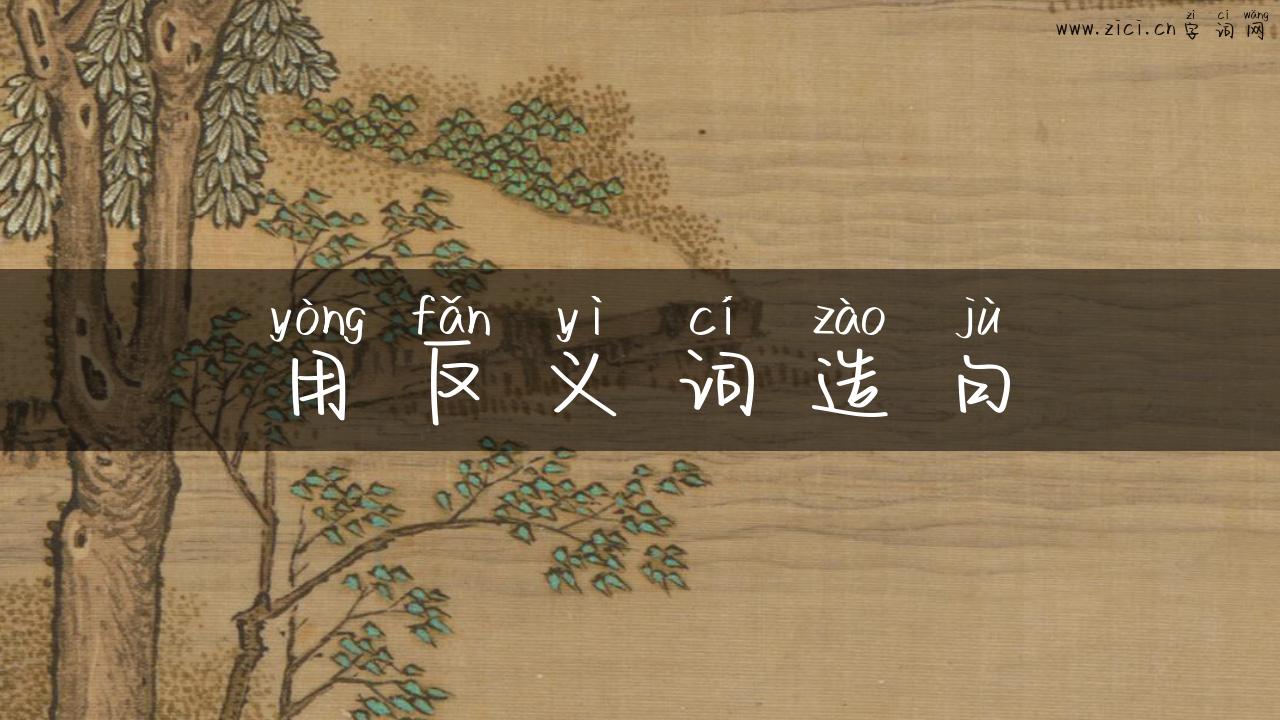 zì cí wǎng
www.zici.cn 字词网
yòng fǎn yì cí zào jù
用反义词造句